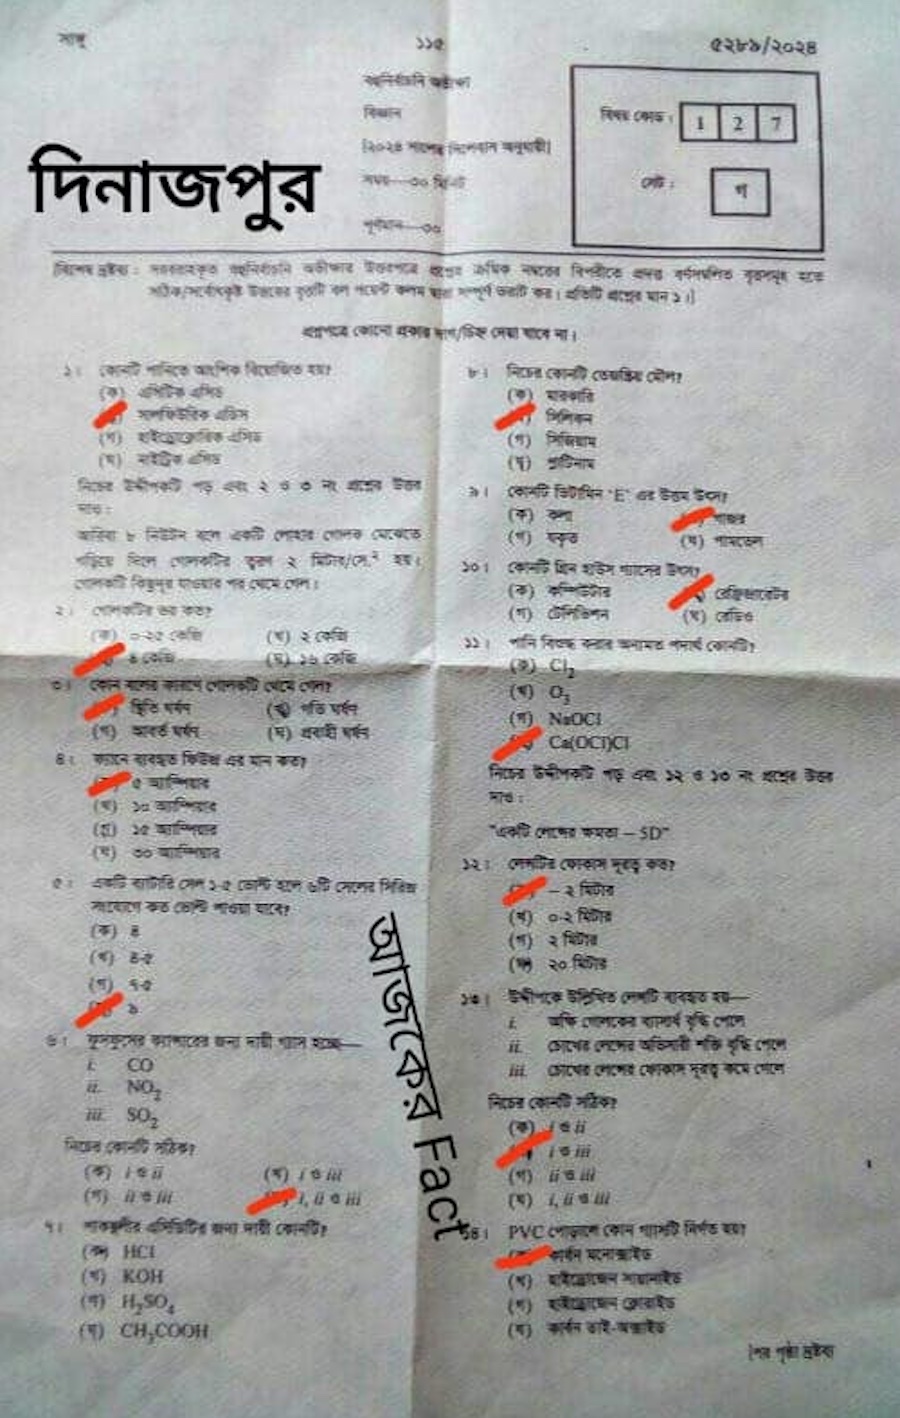 সাঙ্গু
১১৫
৫২৮৯/২০২৪
বহুনির্বাচনি অভীক্ষা
বিষয় কোড : 1 2 7
বিজ্ঞান
[২০২৪ সালের সিলেবাস অনুযায়ী]
দিনাজপুর
সময়—৩০ মিনিট
সেট : গ
পূর্ণমান—৩০
[বিশেষ দ্রষ্টব্য : সরবরাহকৃত বহুনির্বাচনি অভীক্ষার উত্তরপত্রে প্রশ্নের ক্রমিক নম্বরের বিপরীতে প্রদত্ত বর্ণসম্বলিত বৃত্তসমূহ হতে
সঠিক/সর্বোৎকৃষ্ট উত্তরের বৃত্তটি বল পয়েন্ট কলম দ্বারা সম্পূর্ণ ভরাট কর। প্রতিটি প্রশ্নের মান ১।]
প্রশ্নপত্রে কোনো প্রকার দাগ/চিহ্ন দেয়া যাবে না।
১। কোনটি পানিতে আংশিক বিয়োজিত হয়?
(ক) এসিটিক এসিড
সালফিউরিক এসিড
(গ) হাইড্রোক্লোরিক এসিড
(ঘ) নাইট্রিক এসিড
নিচের উদ্দীপকটি পড় এবং ২ ও ৩ নং প্রশ্নের উত্তর
দাও :
আরিবা ৮ নিউটন বলে একটি লোহার গোলক মেঝেতে
গড়িয়ে দিলে গোলকটির ত্বরণ ২ মিটার/সে.² হয়।
গোলকটি কিছুদূর যাওয়ার পর থেমে গেল।
২। গোলকটির ভর কত?
(ক) ০·২৫ কেজি (খ) ২ কেজি
৪ কেজি (ঘ) ১৬ কেজি
৩। কোন বলের কারণে গোলকটি থেমে গেল?
স্থিতি ঘর্ষণ (খ) গতি ঘর্ষণ
(গ) আবর্ত ঘর্ষণ (ঘ) প্রবাহী ঘর্ষণ
৪। ফ্যানে ব্যবহৃত ফিউজ এর মান কত?
৫ অ্যাম্পিয়ার
(খ) ১০ অ্যাম্পিয়ার
(গ) ১৫ অ্যাম্পিয়ার
(ঘ) ৩০ অ্যাম্পিয়ার
৫। একটি ব্যাটারি সেল ১·৫ ভোল্ট হলে ৬টি সেলের সিরিজ
সংযোগে কত ভোল্ট পাওয়া যাবে?
(ক) ৪
(খ) ৪·৫
(গ) ৭·৫
৯
৬। ফুসফুসের ক্যান্সারের জন্য দায়ী গ্যাস হচ্ছে—
i. CO
ii. NO₂
iii. SO₂
নিচের কোনটি সঠিক?
(ক) i ও ii (খ) i ও iii
(গ) ii ও iii i, ii ও iii
৭। পাকস্থলীর এসিডিটির জন্য দায়ী কোনটি?
(ক) HCl
(খ) KOH
(গ) H₂SO₄
(ঘ) CH₃COOH
আজকের Fact
৮। নিচের কোনটি তেজস্ক্রিয় মৌল?
(ক) মারকারি
সিলিকন
(গ) সিজিয়াম
(ঘ) প্লাটিনাম
৯। কোনটি ভিটামিন ‘E’ এর উত্তম উৎস?
(ক) কলা গাজর
(গ) যকৃত (ঘ) পামতেল
১০। কোনটি গ্রিন হাউস গ্যাসের উৎস?
(ক) কম্পিউটার রেফ্রিজারেটর
(গ) টেলিভিশন (ঘ) রেডিও
১১। পানি বিশুদ্ধ করার অন্যতম পদার্থ কোনটি?
(ক) Cl₂
(খ) O₃
(গ) NaOCl
Ca(OCl)Cl
নিচের উদ্দীপকটি পড় এবং ১২ ও ১৩ নং প্রশ্নের উত্তর
দাও :
"একটি লেন্সের ক্ষমতা – 5D"
১২। লেন্সটির ফোকাস দূরত্ব কত?
– ২ মিটার
(খ) ০·২ মিটার
(গ) ২ মিটার
(ঘ) ২০ মিটার
১৩। উদ্দীপকে উল্লিখিত লেন্সটি ব্যবহৃত হয়—
i. অক্ষি গোলকের ব্যাসার্ধ বৃদ্ধি পেলে
ii. চোখের লেন্সের অভিসারী শক্তি বৃদ্ধি পেলে
iii. চোখের লেন্সের ফোকাস দূরত্ব কমে গেলে
নিচের কোনটি সঠিক?
(ক) i ও ii
i ও iii
(গ) ii ও iii
(ঘ) i, ii ও iii
১৪। PVC পোড়ালে কোন গ্যাসটি নির্গত হয়?
কার্বন মনোক্সাইড
(খ) হাইড্রোজেন সায়ানাইড
(গ) হাইড্রোজেন ক্লোরাইড
(ঘ) কার্বন ডাই-অক্সাইড
[পর পৃষ্ঠা দ্রষ্টব্য